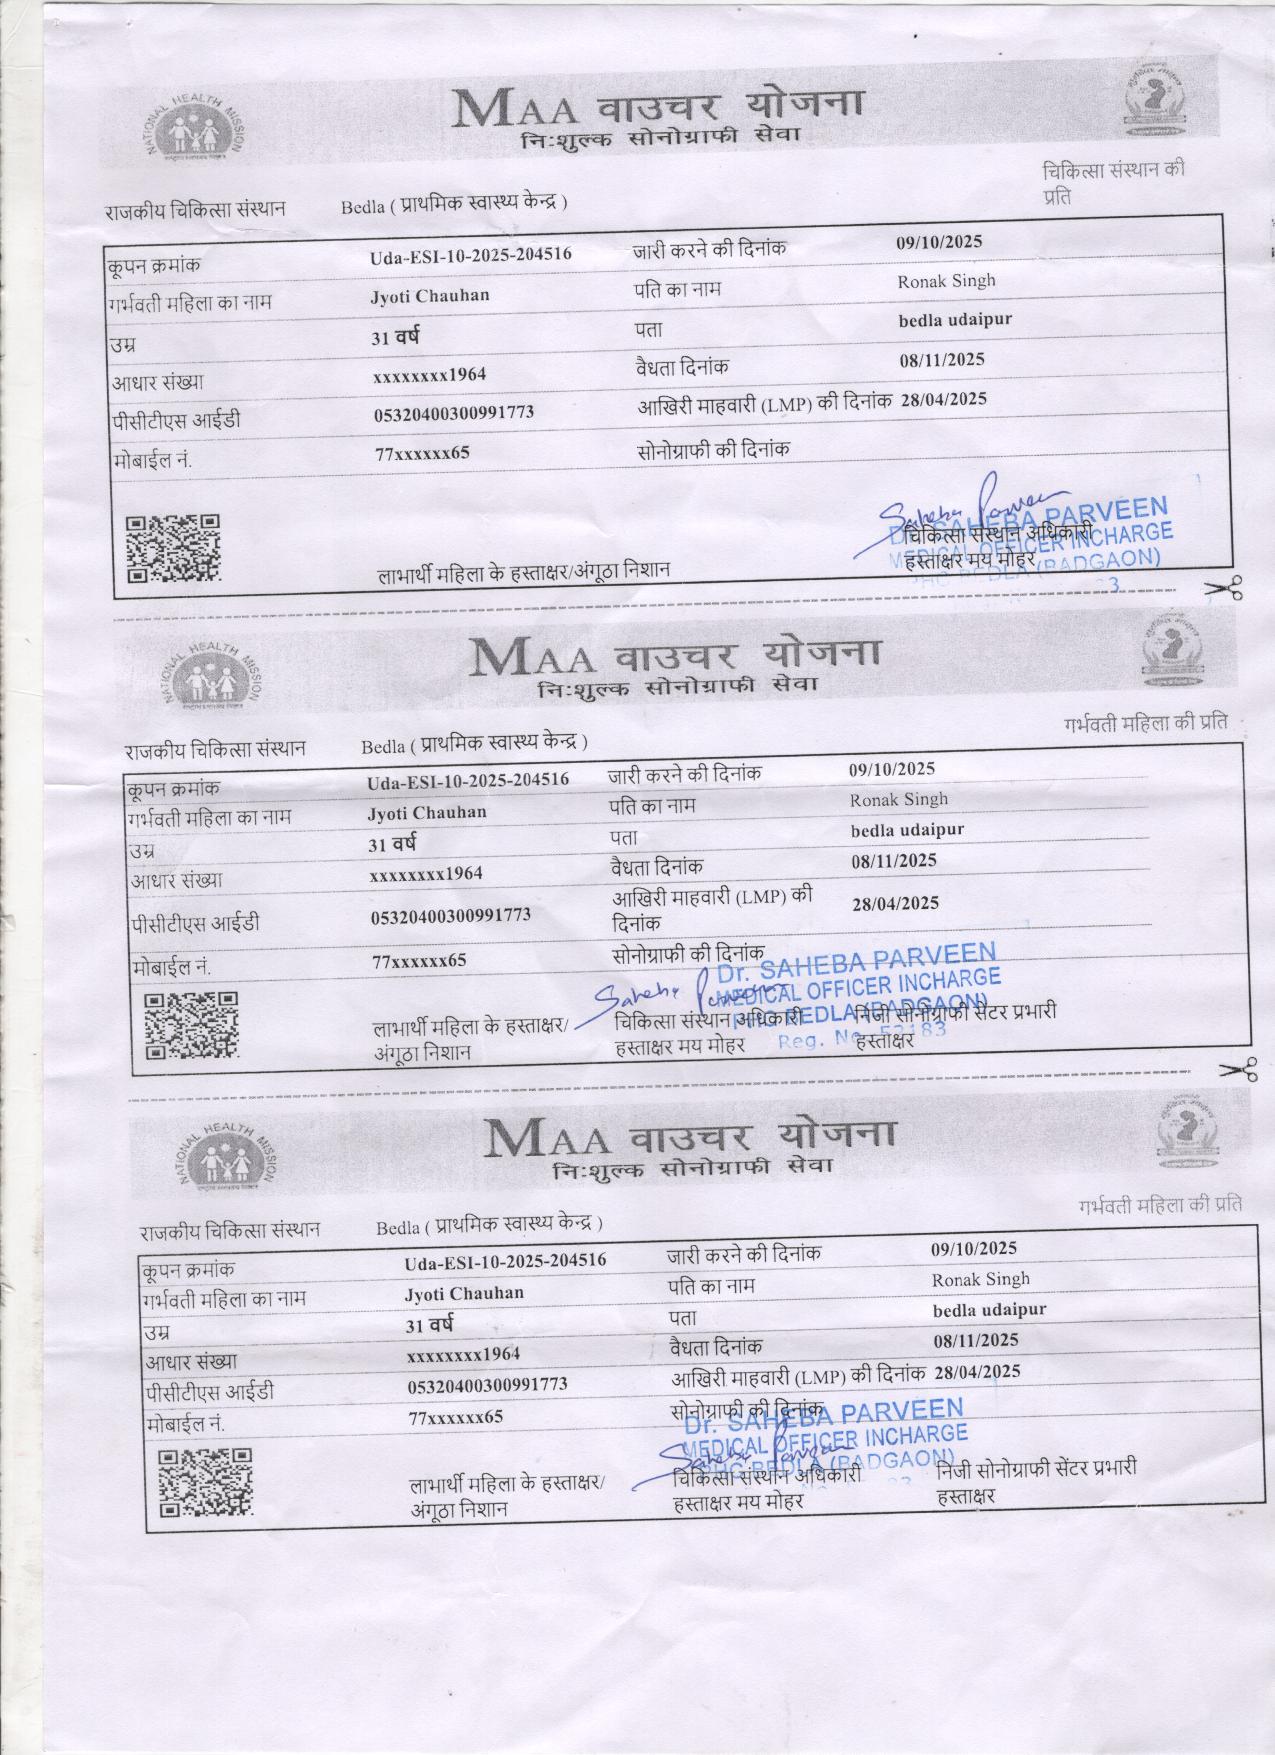 NATIONAL HEALTH MISSION
MAA वाउचर योजना
निःशुल्क सोनोग्राफी सेवा
चिकित्सा संस्थान की
प्रति
राजकीय चिकित्सा संस्थान Bedla ( प्राथमिक स्वास्थ्य केन्द्र )
कूपन क्रमांक Uda-ESI-10-2025-204516 जारी करने की दिनांक 09/10/2025
गर्भवती महिला का नाम Jyoti Chauhan पति का नाम Ronak Singh
उम्र 31 वर्ष पता bedla udaipur
आधार संख्या xxxxxxxx1964 वैधता दिनांक 08/11/2025
पीसीटीएस आईडी 05320400300991773 आखिरी माहवारी (LMP) की दिनांक 28/04/2025
मोबाईल नं. 77xxxxxx65 सोनोग्राफी की दिनांक
Saheba Parveen
Dr. SAHEBA PARVEEN
चिकित्सा संस्थान अधिकारी
MEDICAL OFFICER INCHARGE
हस्ताक्षर मय मोहर
PHC BEDLA (BADGAON)
लाभार्थी महिला के हस्ताक्षर/अंगूठा निशान
NATIONAL HEALTH MISSION
MAA वाउचर योजना
निःशुल्क सोनोग्राफी सेवा
गर्भवती महिला की प्रति
राजकीय चिकित्सा संस्थान Bedla ( प्राथमिक स्वास्थ्य केन्द्र )
कूपन क्रमांक Uda-ESI-10-2025-204516 जारी करने की दिनांक 09/10/2025
गर्भवती महिला का नाम Jyoti Chauhan पति का नाम Ronak Singh
उम्र 31 वर्ष पता bedla udaipur
आधार संख्या xxxxxxxx1964 वैधता दिनांक 08/11/2025
पीसीटीएस आईडी 05320400300991773 आखिरी माहवारी (LMP) की दिनांक 28/04/2025
मोबाईल नं. 77xxxxxx65 सोनोग्राफी की दिनांक
Dr. SAHEBA PARVEEN
Saheba Parveen
MEDICAL OFFICER INCHARGE
PHC BEDLA (BADGAON)
Reg. No. 52183
लाभार्थी महिला के हस्ताक्षर/ चिकित्सा संस्थान अधिकारी निजी सोनोग्राफी सेंटर प्रभारी
अंगूठा निशान हस्ताक्षर मय मोहर हस्ताक्षर
NATIONAL HEALTH MISSION
MAA वाउचर योजना
निःशुल्क सोनोग्राफी सेवा
गर्भवती महिला की प्रति
राजकीय चिकित्सा संस्थान Bedla ( प्राथमिक स्वास्थ्य केन्द्र )
कूपन क्रमांक Uda-ESI-10-2025-204516 जारी करने की दिनांक 09/10/2025
गर्भवती महिला का नाम Jyoti Chauhan पति का नाम Ronak Singh
उम्र 31 वर्ष पता bedla udaipur
आधार संख्या xxxxxxxx1964 वैधता दिनांक 08/11/2025
पीसीटीएस आईडी 05320400300991773 आखिरी माहवारी (LMP) की दिनांक 28/04/2025
मोबाईल नं. 77xxxxxx65 सोनोग्राफी की दिनांक
Dr. SAHEBA PARVEEN
MEDICAL OFFICER INCHARGE
Saheba Parveen
PHC BEDLA (BADGAON)
लाभार्थी महिला के हस्ताक्षर/ चिकित्सा संस्थान अधिकारी निजी सोनोग्राफी सेंटर प्रभारी
अंगूठा निशान हस्ताक्षर मय मोहर हस्ताक्षर